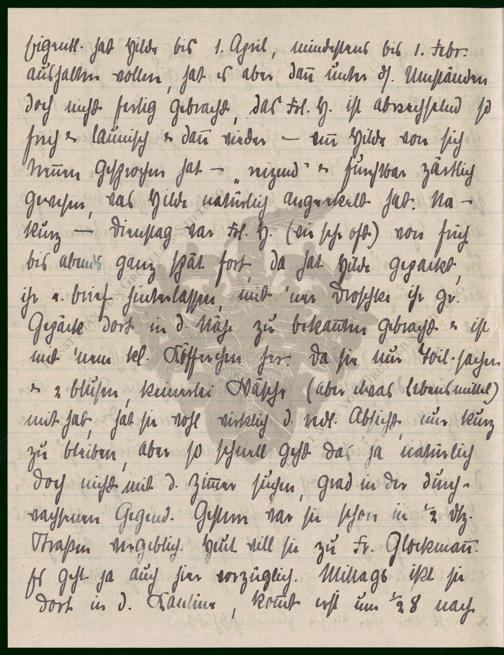 Eigentl. hat Hilde bis 1. April, mindestens bis 1. Febr.
aushalten wollen, hat es aber dañ unter ds. Umständen
doch nicht fertig gebracht, das Frl. H. ist abwechselnd so
frech u. launisch u. dañ wieder — weñ Hilde von sich
gesprochen hat — "reizend" u. furchtbar zärtlich
gewesen, was Hilde natürlich angeekelt hat. Na —
kurz — Dienstag war Frl. H. (wie sehr oft) von früh
bis abends ganz spät fort, da hat Hilde gepackt,
ihr e. Brief hinterlassen, mit 'ner Droschke ihr gr.
Gepäck dort in d. Nähe zu Bekañten gebracht u. ist
mit 'nem kl. Köfferchen her. Da sie nur
u. 2 Blusen, keinerlei Wäsche (aber etwas Lebensmittel)
mit hat, hat sie wohl wirklich d. redl. Absicht, nur kurz
zu bleiben, aber so schnell geht das ja natürlich
doch nicht mit d. Zimmer suchen, grad in der
Gegend. Gestern war sie schon in ½ Dtz.
Straßen vergeblich. Heut will sie zu Fr. Glockmañ.
Es geht ja auch hier vorzüglich. Mittags ißt sie
dort in d. Kantine, kom̄t erst um ½ 8 nach